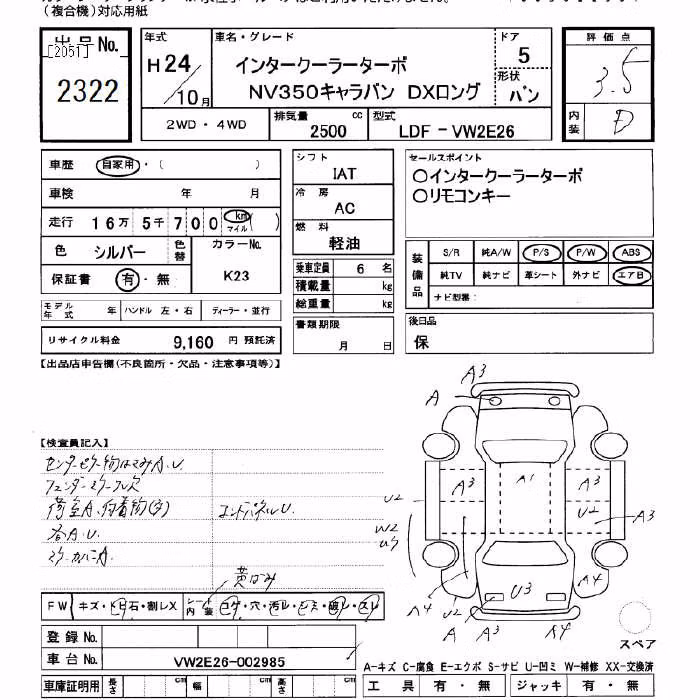 (複合機)対応用紙
出品No.
[2051]
2322
年式
H24/10月
車名・グレード
インタークーラーターボ
NV350キャラバン DXロング
ドア
5
形状
バン
評価点
3.5
内装
D
2WD・4WD
排気量 2500 cc
型式 LDF-VW2E26
車歴 自家用・( )
車検 年 月
走行 16万 5千700 km マイル ( )
色 シルバー 色替
カラーNo.
K23
保証書 有・無
モデル年式 年 ハンドル 左・右 ディーラー・並行
リサイクル料金 9,160 円 預託済
シフト
IAT
冷房
AC
燃料
軽油
乗車定員 6 名
積載量 kg
総重量 kg
書類期限
月 日
セールスポイント
○インタークーラーターボ
○リモコンキー
装備品
S/R 純A/W P/S P/W ABS
純TV 純ナビ 革シート 外ナビ エアB
ナビ型番:
後日品
保
【出品店申告欄(不良箇所・欠品・注意事項等)】
【検査員記入】
荷室A、
各A.U
FW キズ・トビ石・割レX
シート内装 コゲ・穴・汚レ・シミ・破レ・スレ
登録No.
車台No. VW2E26-002985
車庫証明用 長さ cm 幅 cm 高さ cm
A3
A
A1
A3
A3
U2
U2
A3
W2
U3
A4
U2
A
A3
A4
スペア
A-キズ C-腐食 E-エクボ S-サビ U-凹ミ W-補修 XX-交換済
工具 有・無 ジャッキ 有・無